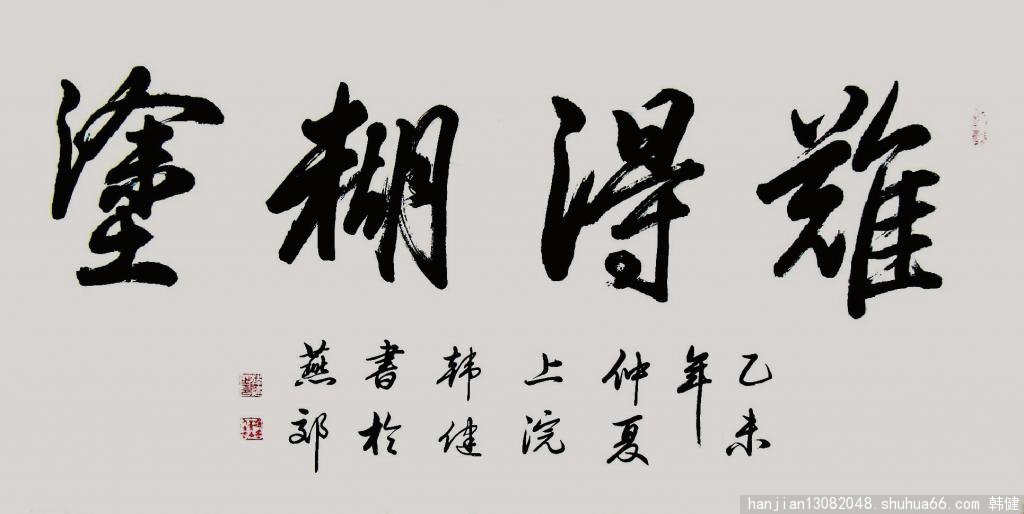 難得糊塗
乙未
年
仲夏
上浣
韩健
書於
燕郊
hanjian13082048.shuhua66.com 韩健